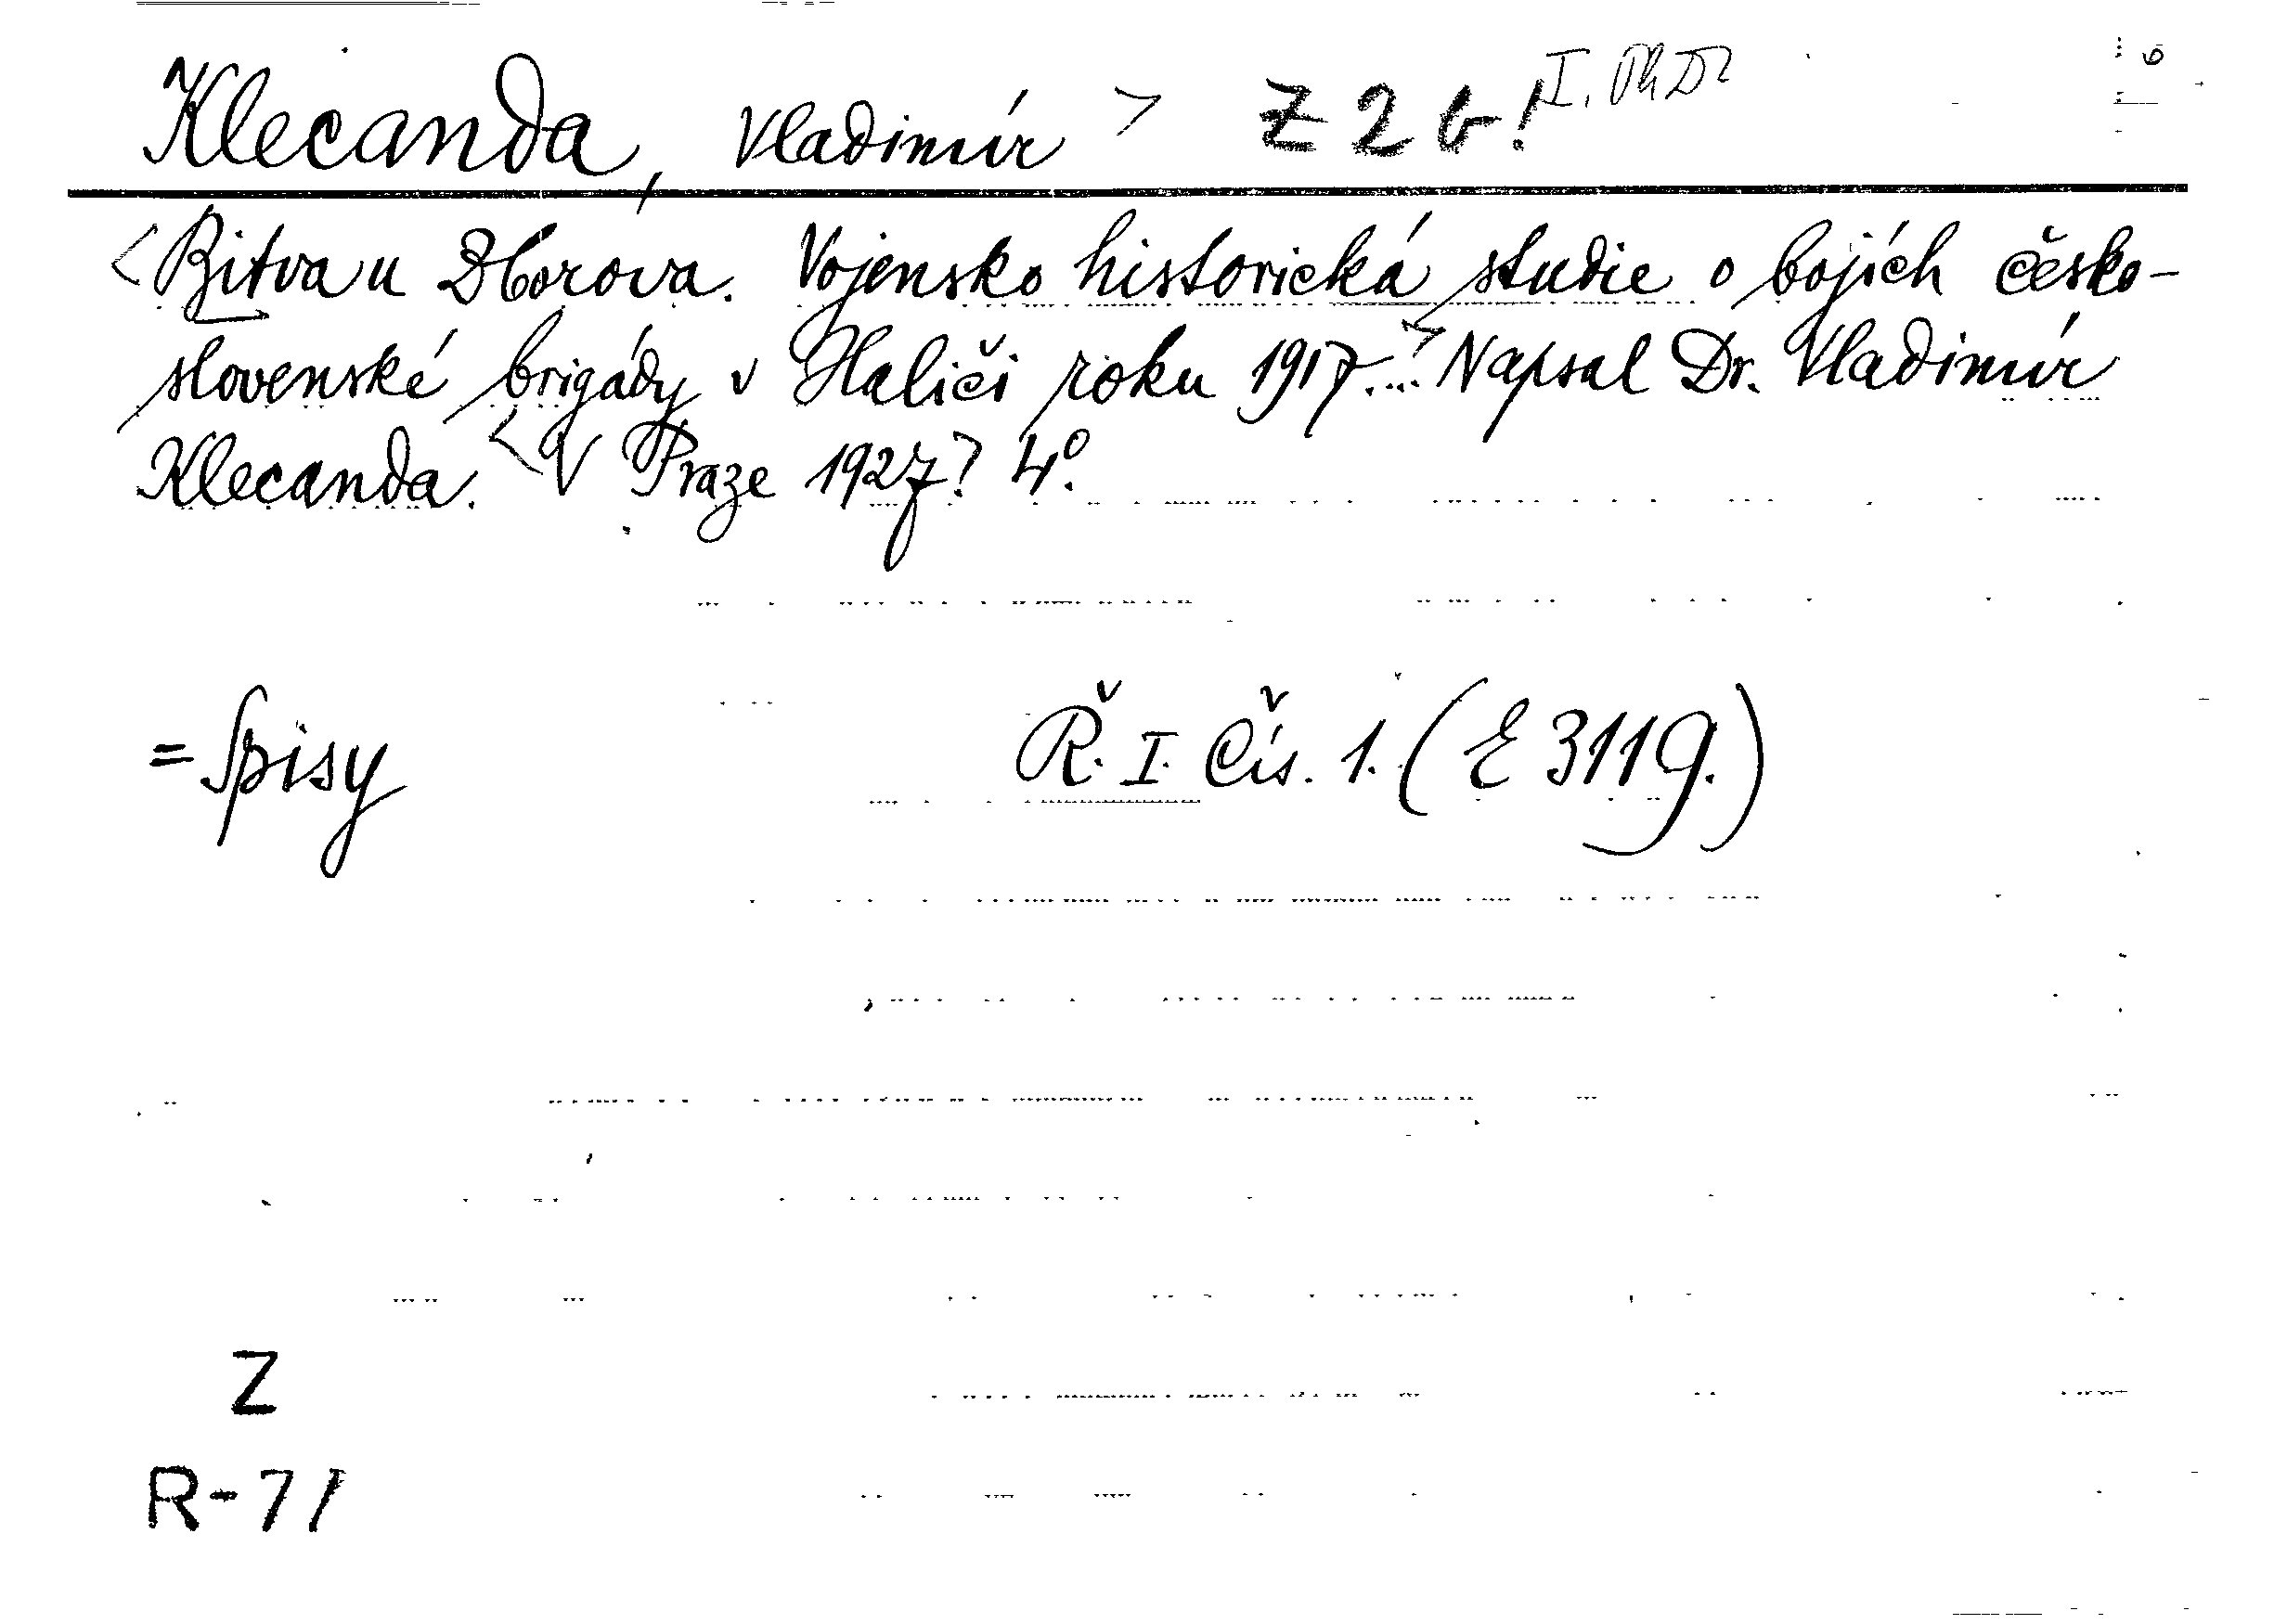 Klecanda, Vladimír > Z 2 b! I, PhDr
<Bitva u Zborova. Vojensko historická studie o bojích česko-
slovenské brigády v Haliči roku 1917...> Napsal Dr. Vladimír
Klecanda. <V Praze 1927? 4°.
= Spisy Ř. I. Čís. 1. (E 3119.)
Z
R-71